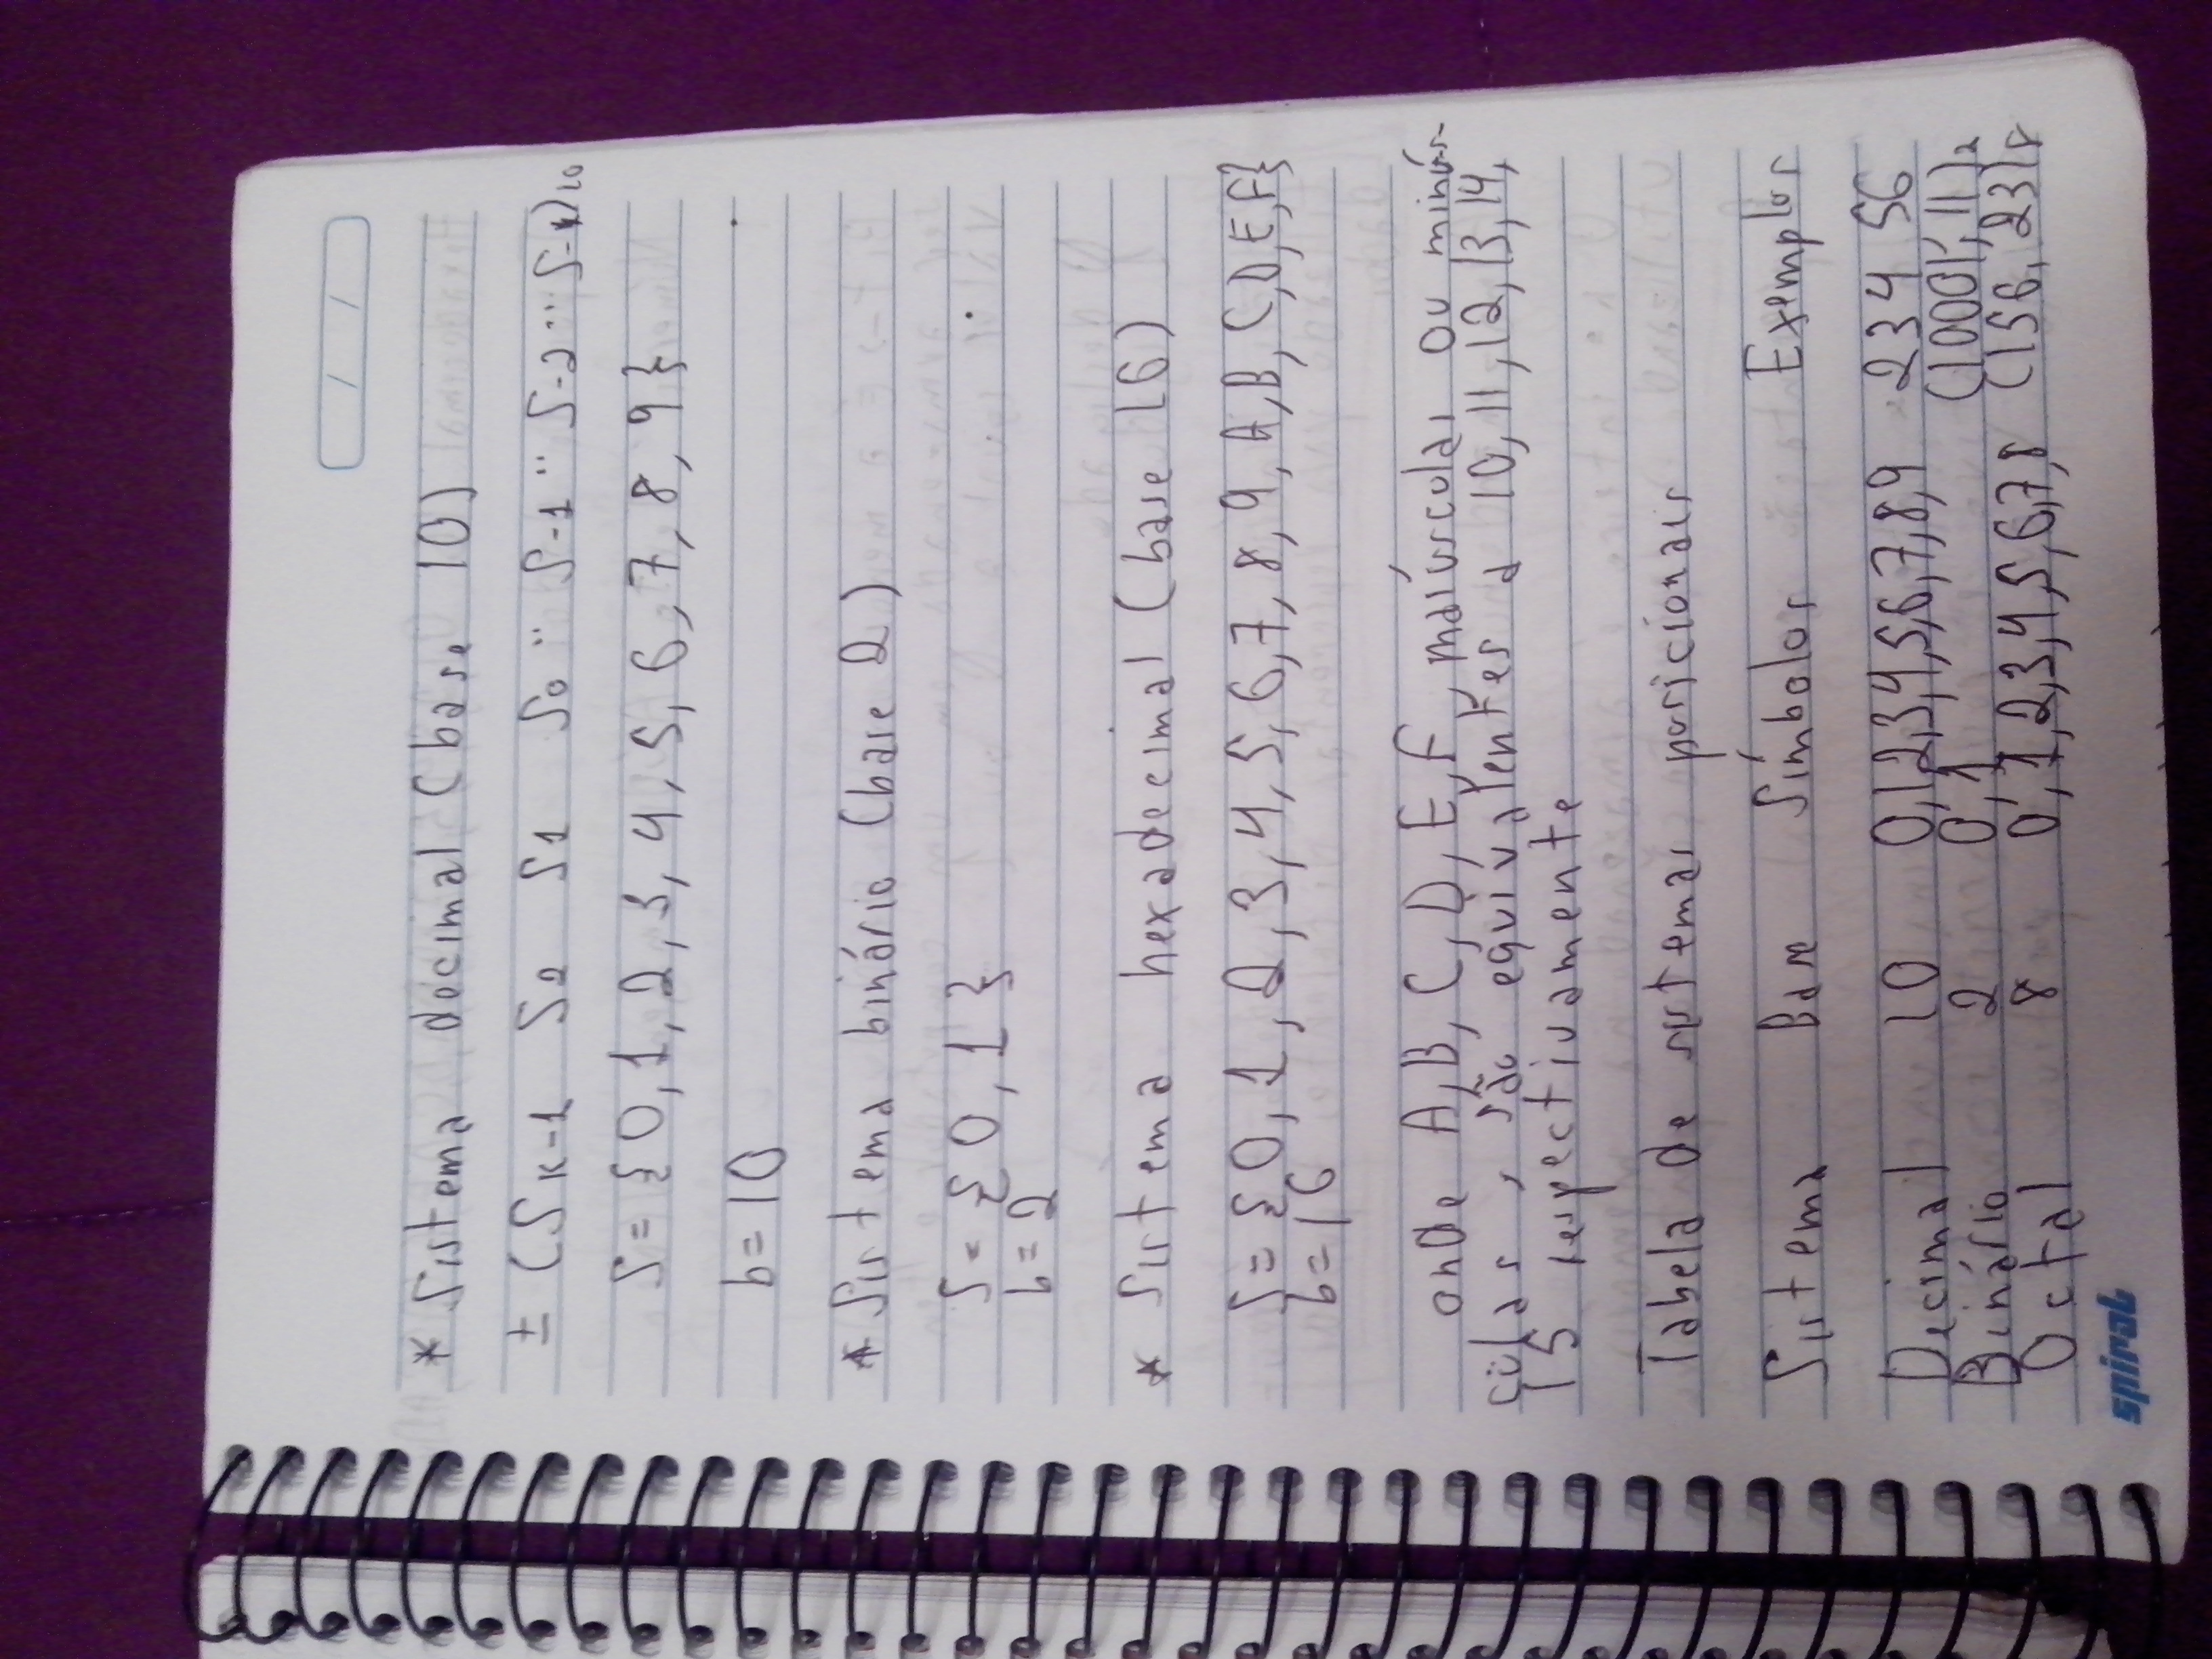 / /
* Sistema decimal (base 10)
± (Sk-1 S2 S1 S0 ·· S-1 ·· S-2 ·· S-k)10
S = {0, 1, 2, 3, 4, 5, 6, 7, 8, 9}
b = 10
* Sistema binário (base 2)
S = {0, 1}
b = 2
* Sistema hexadecimal (base 16)
S = {0, 1, 2, 3, 4, 5, 6, 7, 8, 9, A, B, C, D, E, F}
b = 16
onde A, B, C, D, E, F, maiúsculas ou minús-
culas, são equivalentes a 10, 11, 12, 13, 14,
15 respectivamente
Tabela de sistemas posicionais
Sistema Base Símbolos Exemplos
Decimal 10 0,1,2,3,4,5,6,7,8,9 234 56
Binário 2 0, 1 (10001, 11)2
Octal 8 0, 1, 2, 3, 4, 5, 6, 7, 8 (156, 23)8
spiral